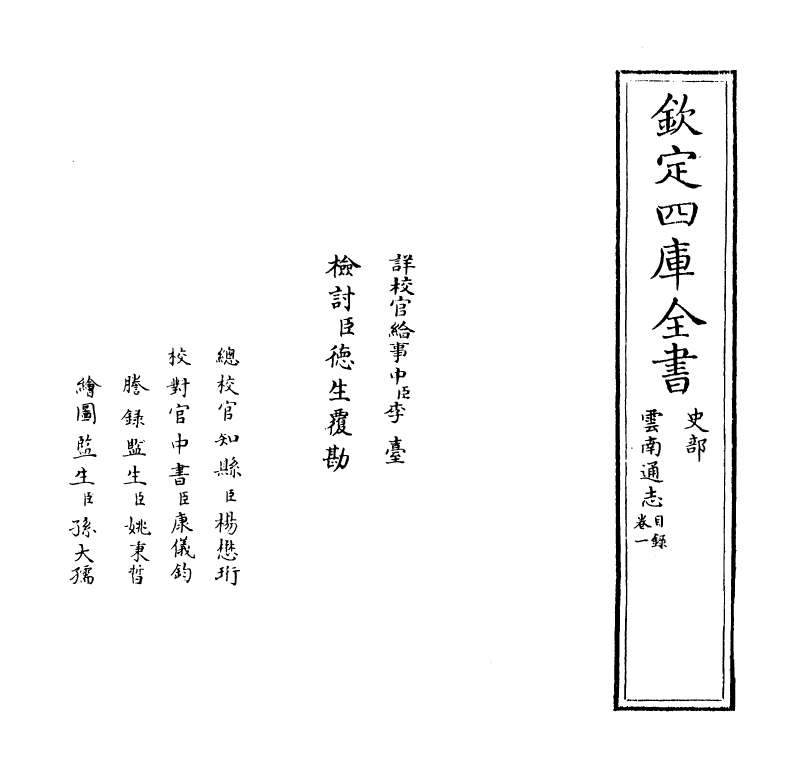 欽定四庫全書
史部
雲南通志目録
卷一
詳校官給事中臣李臺
檢討臣德生覆勘
總校官知縣臣楊懋珩
校對官中書臣康儀鈞
謄録監生臣姚秉哲
繪圖監生臣孫大孺